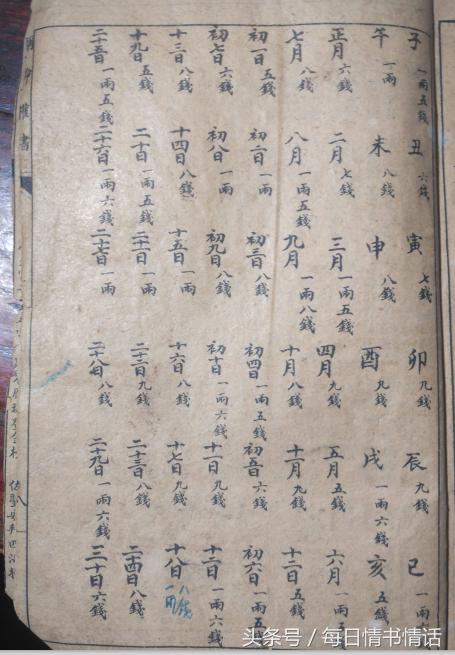 子 一兩五錢 丑 六錢 寅 七錢 卯 九錢 辰 九錢 巳 一兩
午 一兩 未 八錢 申 八錢 酉 九錢 戌 一兩六錢 亥 五錢
正月 六錢 二月 七錢 三月 一兩五錢 四月 九錢 五月 五錢 六月 一兩五
七月 八錢 八月 一兩五錢 九月 一兩八錢 十月 八錢 十一月 九錢 十二月 五錢
初一日 五錢 初二日 一兩 初三日 八錢 初四日 一兩五錢 初五日 六錢 初六日 一兩五錢
初七日 六錢 初八日 一兩 初九日 八錢 初十日 一兩六錢 十一日 九錢 十二日 一兩六錢
十三日 八錢 十四日 八錢 十五日 一兩 十六日 八錢 十七日 九錢 十八日 八錢
十九日 五錢 二十日 一兩五錢 二十一日 一兩 二十二日 九錢 二十三日 八錢 二十四日 八錢
二十五日 一兩五錢 二十六日 一兩六錢 二十七日 一兩 二十八日 八錢 二十九日 一兩六錢 三十日 六錢
书
头条号 / 每日情书情话